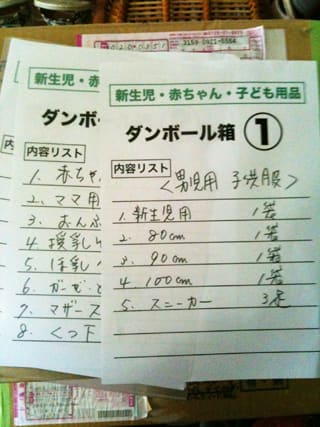 新生児・赤ちゃん・子ども用品
ダンボール箱 ①
内容リスト
<男児用 子供服>
1. 新生児用 1箱
2. 80cm 1箱
3. 90cm 1箱
4. 100cm 1箱
5. スニーカー 3足
新生児・赤
ダンボ
内容リスト
1. 赤ちゃ
2. ママ用
3. おんぶ
4. 授乳
5. ほ乳
6. ガーゼ
7. マザーズ
8. くつ下